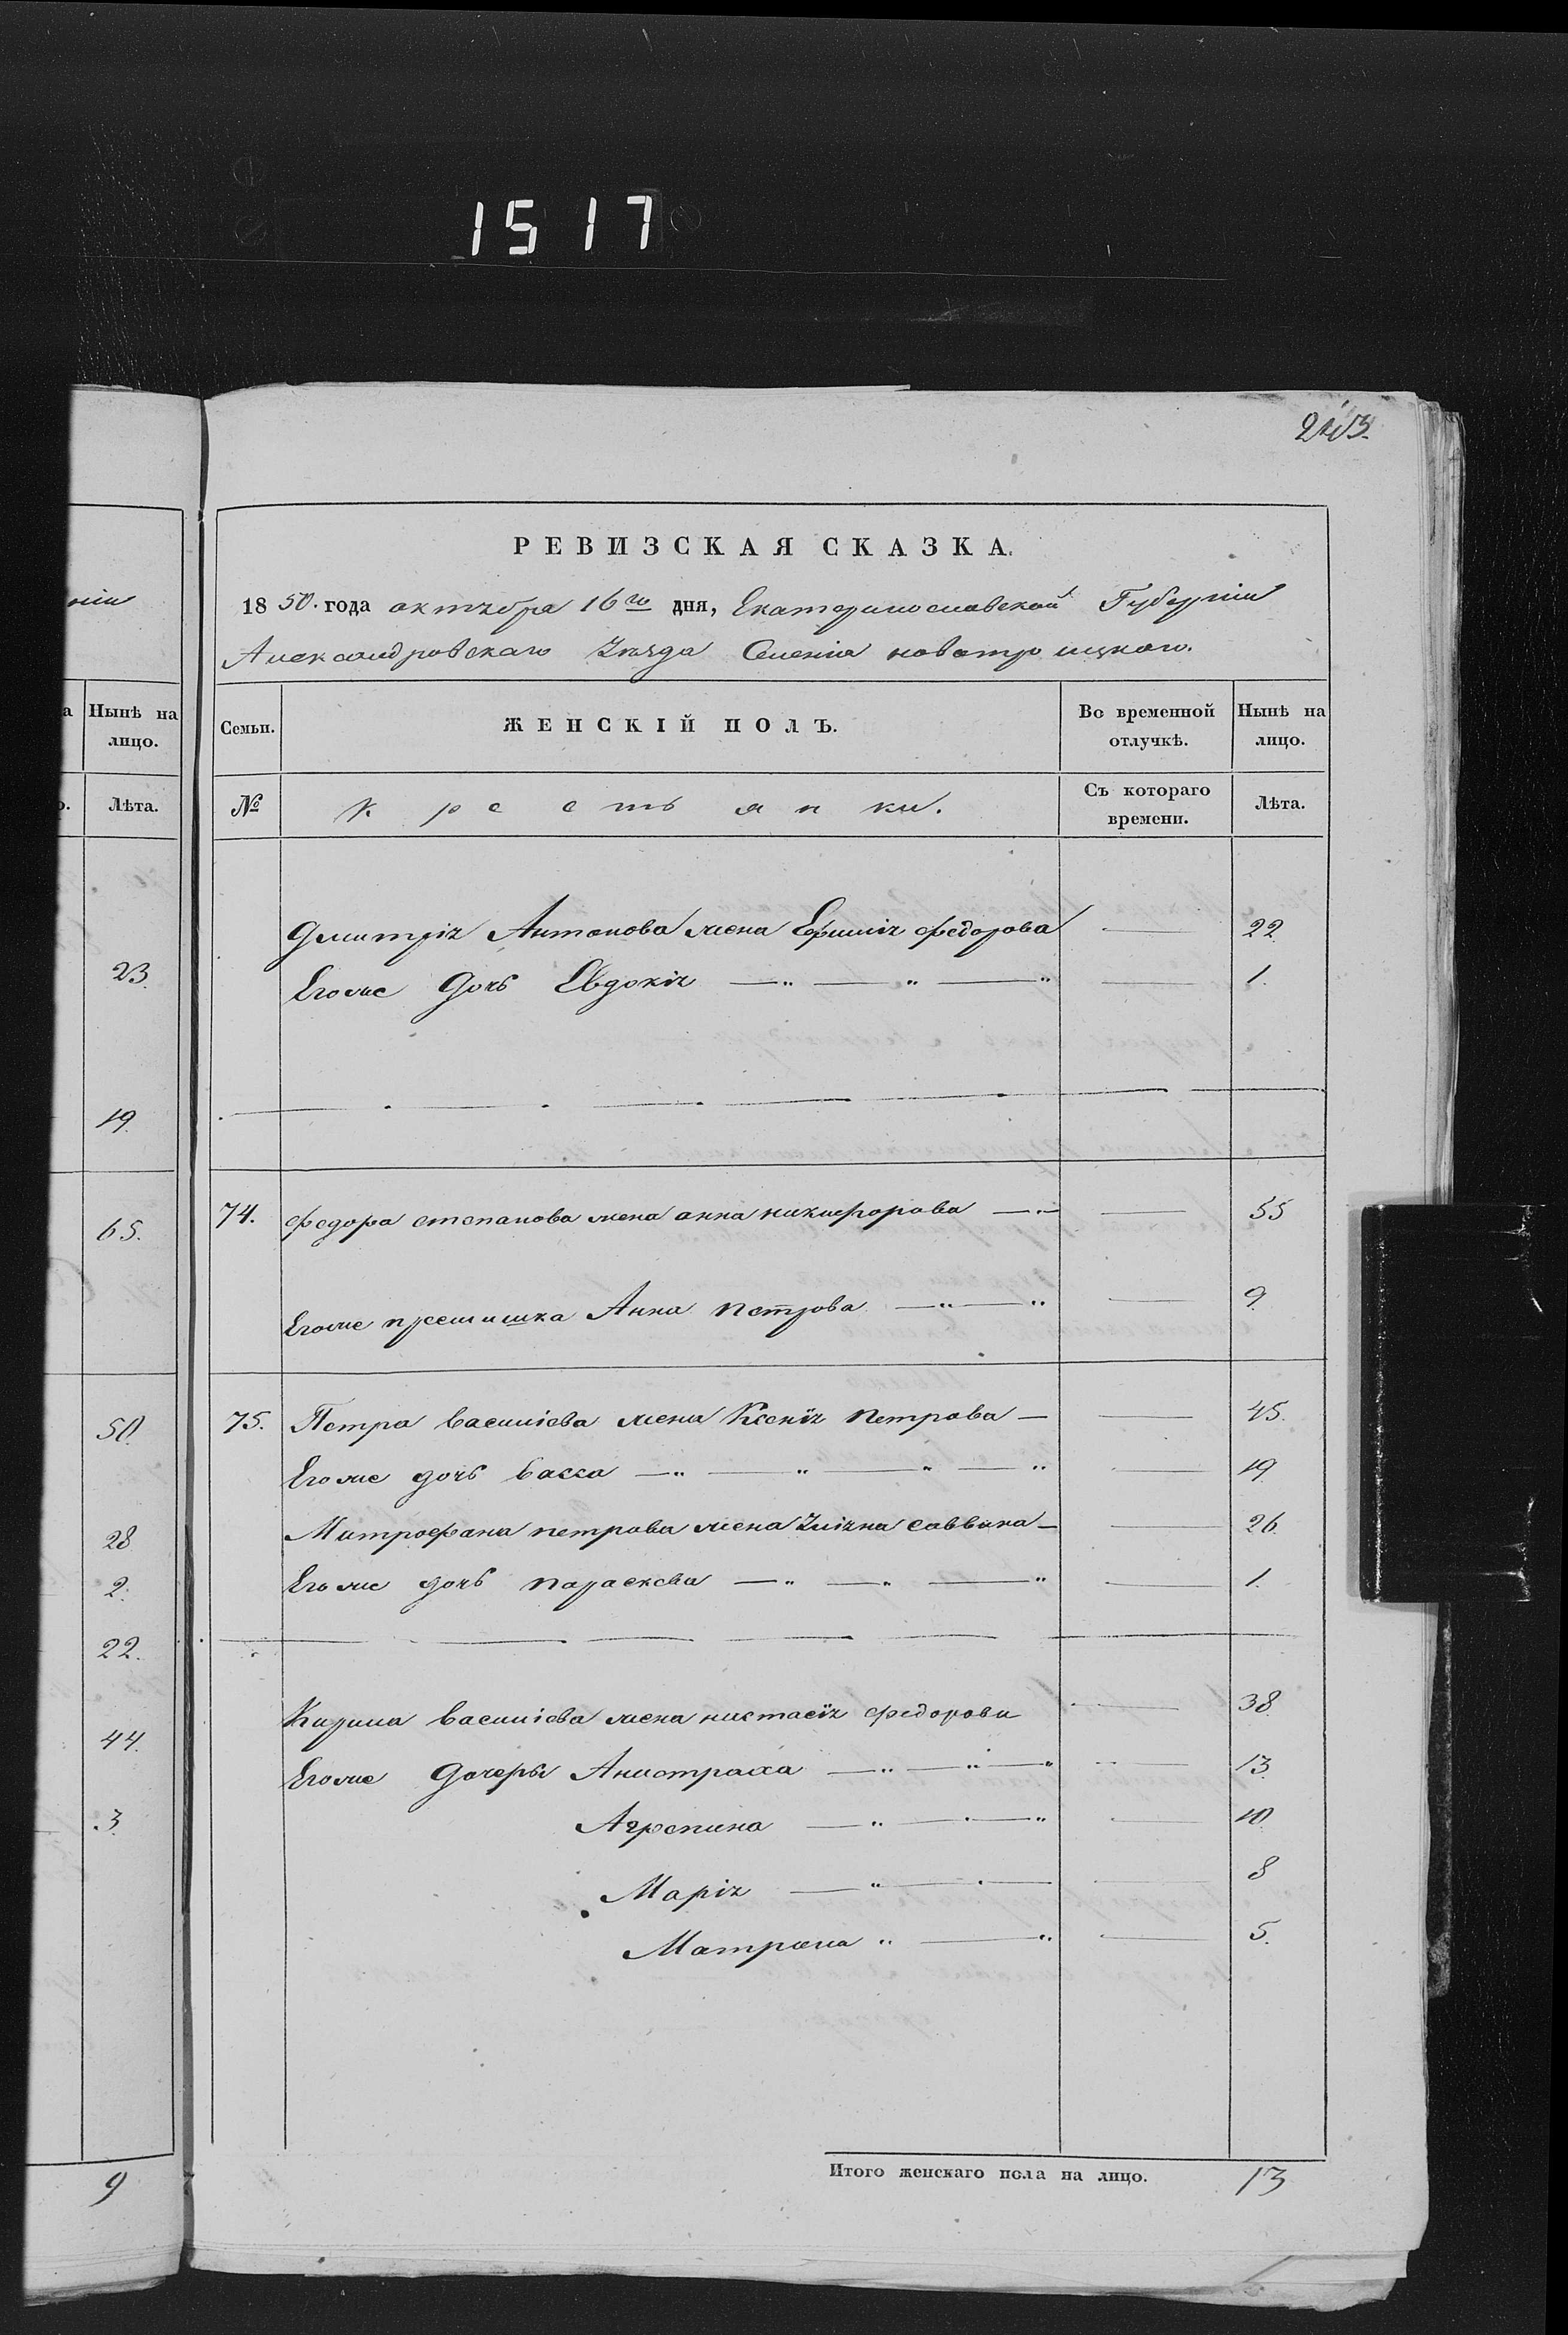 1517
нiи
а Нынѣ на лицо.
о. Лѣта.
23.
19.
65.
50.
28
2.
22.
44.
3.
9
РЕВИЗСКАЯ СКАЗКА.
1850. года октября 16го дня, Екатеринославской Губерніи
Александровскаго Уѣзда Селенія новотроицкаго.
Семьи. ЖЕНСКІЙ ПОЛЪ. Во временной отлучкѣ. Нынѣ на лицо.
№ Крестьянки. Съ котораго времени. Лѣта.
Дмитрія Антонова жена Ефимія федорова — 22
Егоже Дочь Евдокія — „ — „ — „ — 1.
74. федора степанова жена анна никифорова — „ — — 55
Егоже Анна петрова — „ — „ — 9.
75. Петра василіева жена Ксенія петрова — — 45.
Егоже дочь васса — „ — „ — „ — „ — 19
Митрофана петрова жена Уліяна саввина — — 26.
Егоже дочь параскева — „ — „ — „ — 1.
Кирила василіева жена настасія федорова — 38
Егоже Дочеры Анистраха — „ — „ — „ — 13.
Агрепина — „ — „ — 10
Марія — „ — — 8
Матрона „ — „ — 5.
Итого женскаго пола на лицо. 13